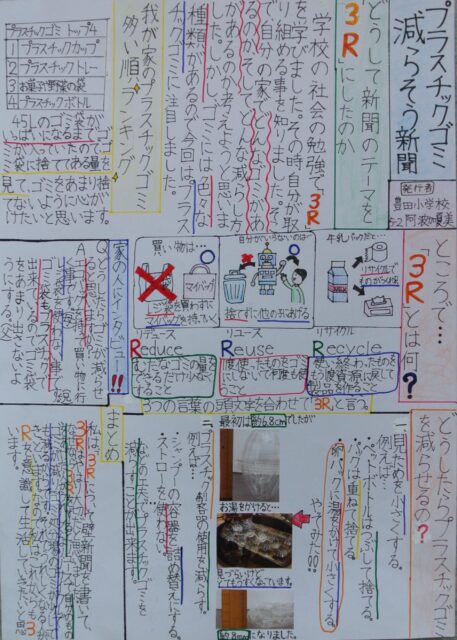 プラスチックゴミ
減らそう新聞
発行者
豊田小学校
どうして新聞のテーマを
「3R」にしたのか
学校の社会の勉強で「3R」
を学びました。その時自分が取
り組める事を知りました。そ
で自分の家でどんなゴミが
があるのか
のかそしてどんな減らし方が
あるのか考えようと思いま
した。しかし、ゴミには色々な
種類があるので今回はプラス
チックゴミに注目しました。
我が家のプラスチックゴミ
多い順ランキング
プラスチックゴミ トップ4
1 プラスチックカップ
2 プラスチックトレー
3 お菓子や野菜の袋
4 プラスチックボトル
45Lのゴミ袋が
いっぱいになるまでゴ
ミ袋に捨ててある量を
見て、ゴミをあまり捨て
ないように心が
けたいと思います。
ところで…
「3R」とは何?
牛乳パックだって…
リサイクルで
自分がいらないのは…
捨てずに他の子にあげる
買い物は…
マイバッグ
マイバッグを持っていく
リサイクル
Recycle
使い終わったものを
もう一度資源に戻して
製品を作ること
リユース
Reuse
一度使ったものをゴミ
にしないで何度も使う
こと
リデュース
Reduce
むだなゴミの量を
できるだけ少なく
すること
3つの言葉の頭文字を合わせて3Rと言う。
家の人にインタビュー!!
Q どうしたらゴミが減らせ
ると思いますか?
A エコバッグを持って買い物に行
をあまり出さないよ
うにする。(父)
どうしたらプラスチックゴミ
を減らせるの?
一、見ためを小さくする。
例えば…
・ペットボトルはつぶして捨てる。
・パックは重ねて捨てる。
・卵パックに湯をかけて小さくする。
やってみた!!
最初は約6.8cmでしたが
お湯をかけると…
見づらいけど
とても小さくなっています。
約.8mmになりました。
二、プラスチック製品の使用を減らす。
例えば…
・シャンプーの容器を詰め替えにする。
・ストローを使わない。
減らすことが出来ます。
まとめ
私は「3R」について壁新聞を書いて、
Rを意識して生活していきたいと思
います。